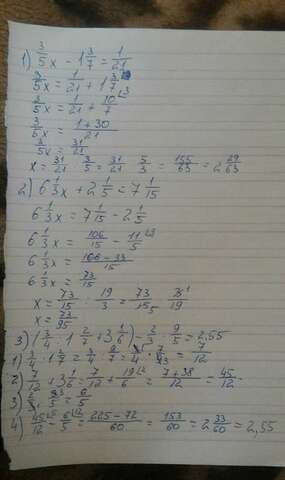 1) 3/5x - 1 3/7 = 1/21
3/5x = 1/21 + 1 3/7
3/5x = 1/21 + 10/7
3/5x = 1+30/21
3/5x = 31/21
x = 31/21 : 3/5 = 31/21 · 5/3 = 155/63 = 2 29/63
2) 6 1/3x + 2 1/5 = 7 1/15
6 1/3x = 7 1/15 - 2 1/5
6 1/3x = 106/15 - 11/5
6 1/3x = 106-33/15
6 1/3x = 73/15
x = 73/15 : 19/3 = 73/15 · 3/19
x = 73/95
3) (3/4 : 1 2/7 + 3 1/6) - 2/3 · 9/5 = 2,55
1) 3/4 : 1 2/7 = 3/4 : 9/7 = 3/4 · 7/9 = 7/12
2) 7/12 + 3 1/6 = 7/12 + 19/6 = 7+38/12 = 45/12
3) 2/3 · 9/5 = 6/5
4) 45/12 - 6/5 = 225-72/60 = 153/60 = 2 33/60 = 2,55